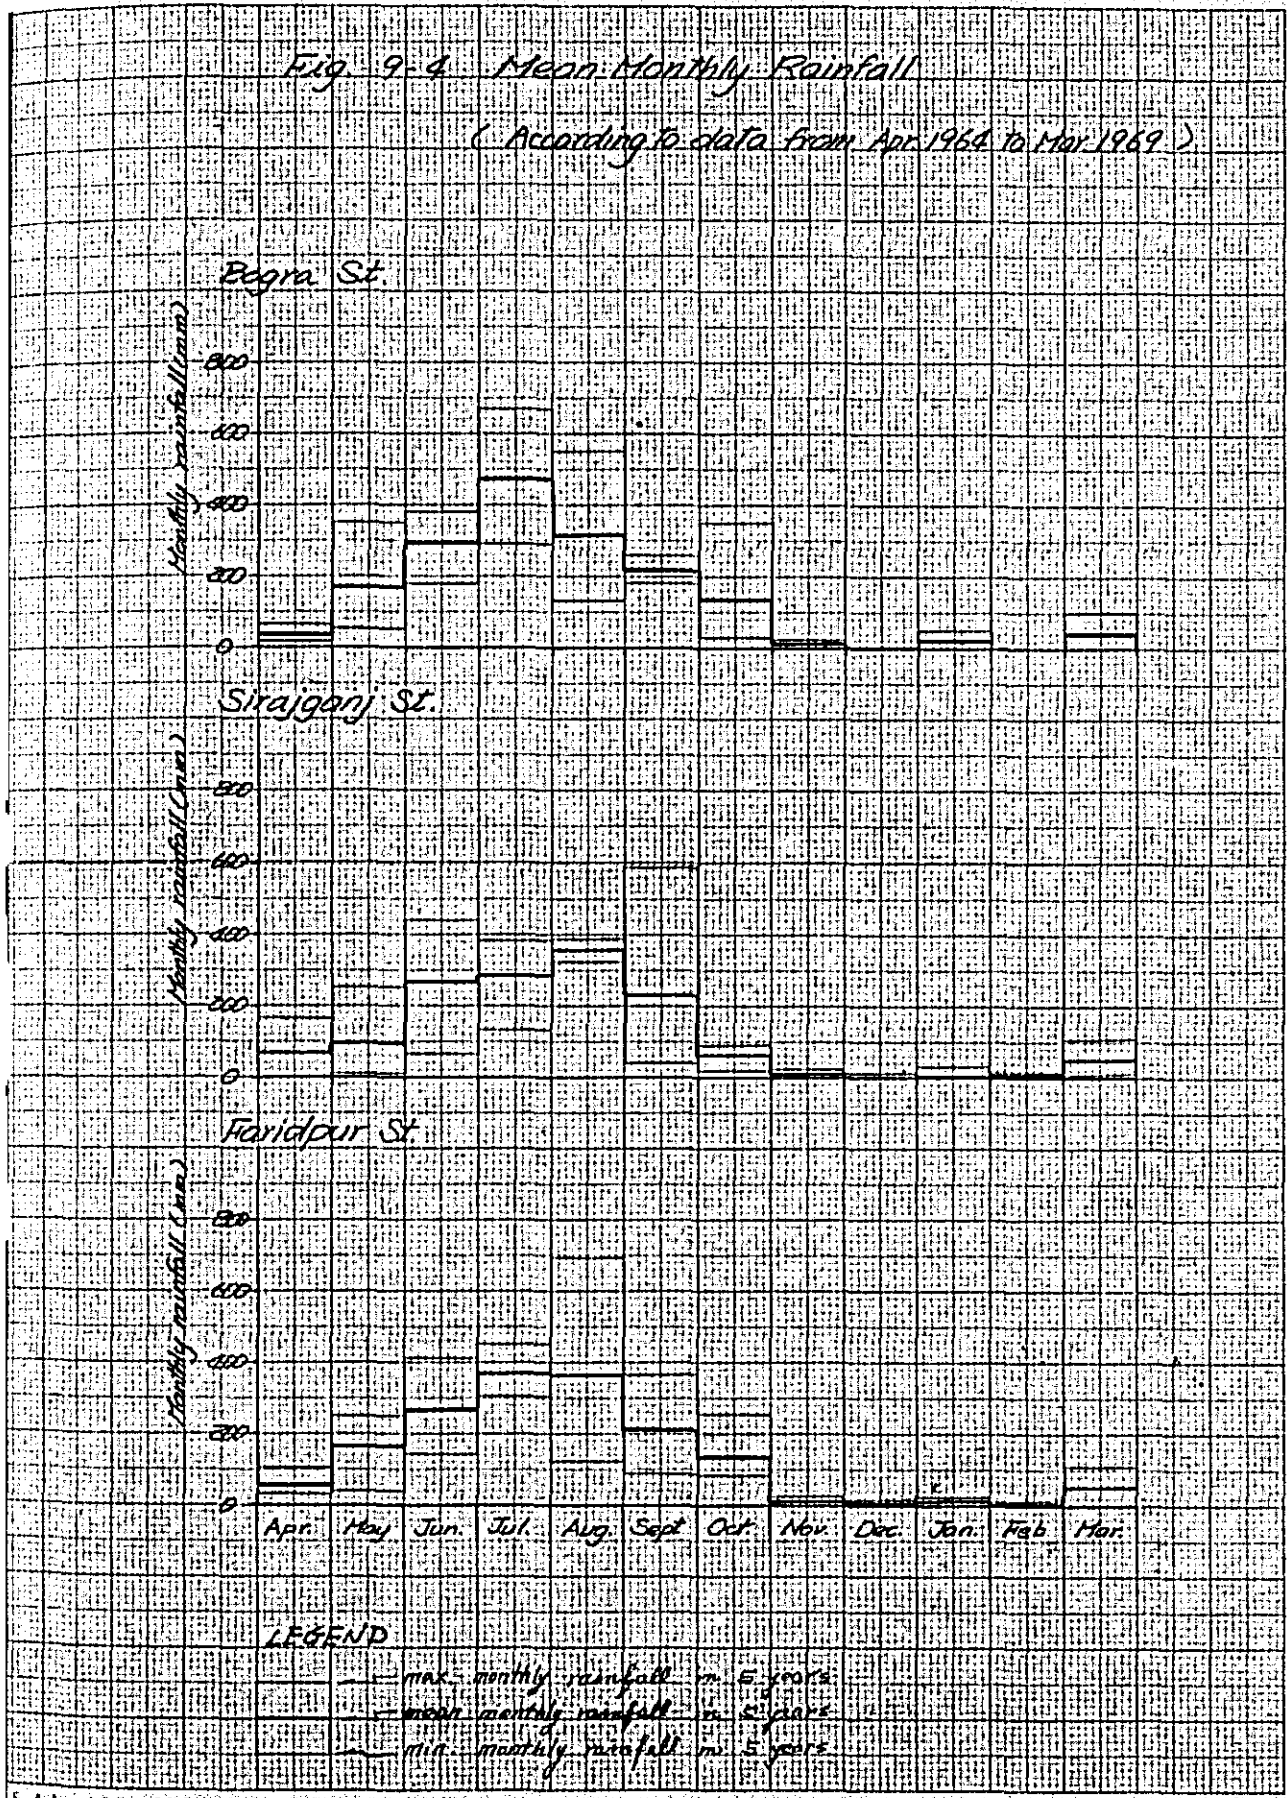 Fig 9-4 Mean Monthly Rainfall
( According to data from Apr. 1964 to Mar. 1969 )
Bogra St.
Monthly rainfall (mm)
800
600
400
200
0
Sirajganj St.
Monthly rainfall (mm)
800
600
400
200
0
Faridpur St.
Monthly rainfall (mm)
800
600
400
200
0
Apr. May Jun. Jul. Aug. Sept Oct. Nov. Dec. Jan. Feb Mar.
LEGEND
max. monthly rainfall in 5 years
mean monthly rainfall in 5 years
min. monthly rainfall in 5 years